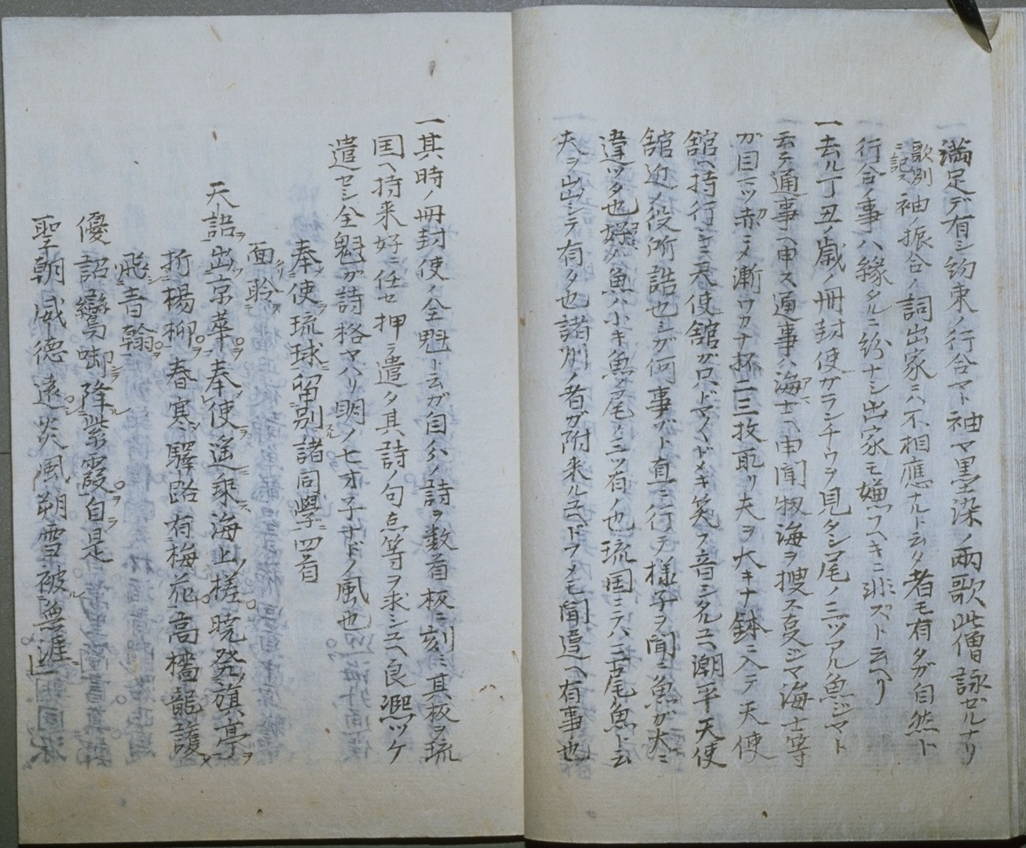 満足デ有シ約束ノ行合マト袖マ黒染ノ両歌此僧詠ゼルナリ
歌別ニ記ス袖ノ振合ノ詞出家ニハ不相應ナルト云タ者モ有タガ自然ト
行合ノ事ハ縁タルニ紛ナシ出家モ嫌フヘキニ非ズト云ヘリ
一去ル丁丑ノ歳ノ冊封使ガランチウヲ見タシ尾ノ三ツアル魚ジマト
云テ通事ヘ申ス通事ハ海士ヘ申聞収海ヲ捜ス夏ジマ海士等
ガ目ニツ赤メ漸ワカナ杯二三枚取リ夫ヲ大キナ鉢ニ入テ天使
舘ヘ持行シニ天使舘ガロハドマドメキ笑フ音シタルユヘ潮平天使
舘辺ノ役所詰也シガ何事ガト直ニ行テ様子ヲ聞シニ魚ガ大ニ
違ツタ也好ガ魚ハ小キ魚ヲ尾ノ三ツ有ノ也琉国ニテハ三古尾魚ト云
夫ヲ出シテ有タ也諸別ノ者ガ附来ルユヘドフノモ聞違ヘ有事也
一其時ノ冊封使ノ全魁ト云ガ自分ノ詩ヲ数首板ニ刻ミ其板ヲ琉
国ヘ持来好ニ任セ押シ遣タ其詩ノ句点等ヲ求シユヘ良煕ツケ
遣セシ全魁ガ詩格マハリ明ノ七才子ナドノ風也
奉使琉球留別諸同學四首
面聆
天語出京華奉使遥乗海上槎暁発旗亭
折楊柳春寒驛路有梅花高檣龍護
飛青翰
優詔鸞啣降紫霞自是
聖朝威徳遠炎風朔雪被無涯